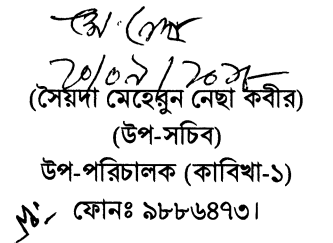 (সৈয়দা মেহেরুন নেছা কবীর)
(উপ-সচিব)
উপ-পরিচালক (কাবিখা-১)
ফোনঃ ৯৮৮৬৪৭৩।